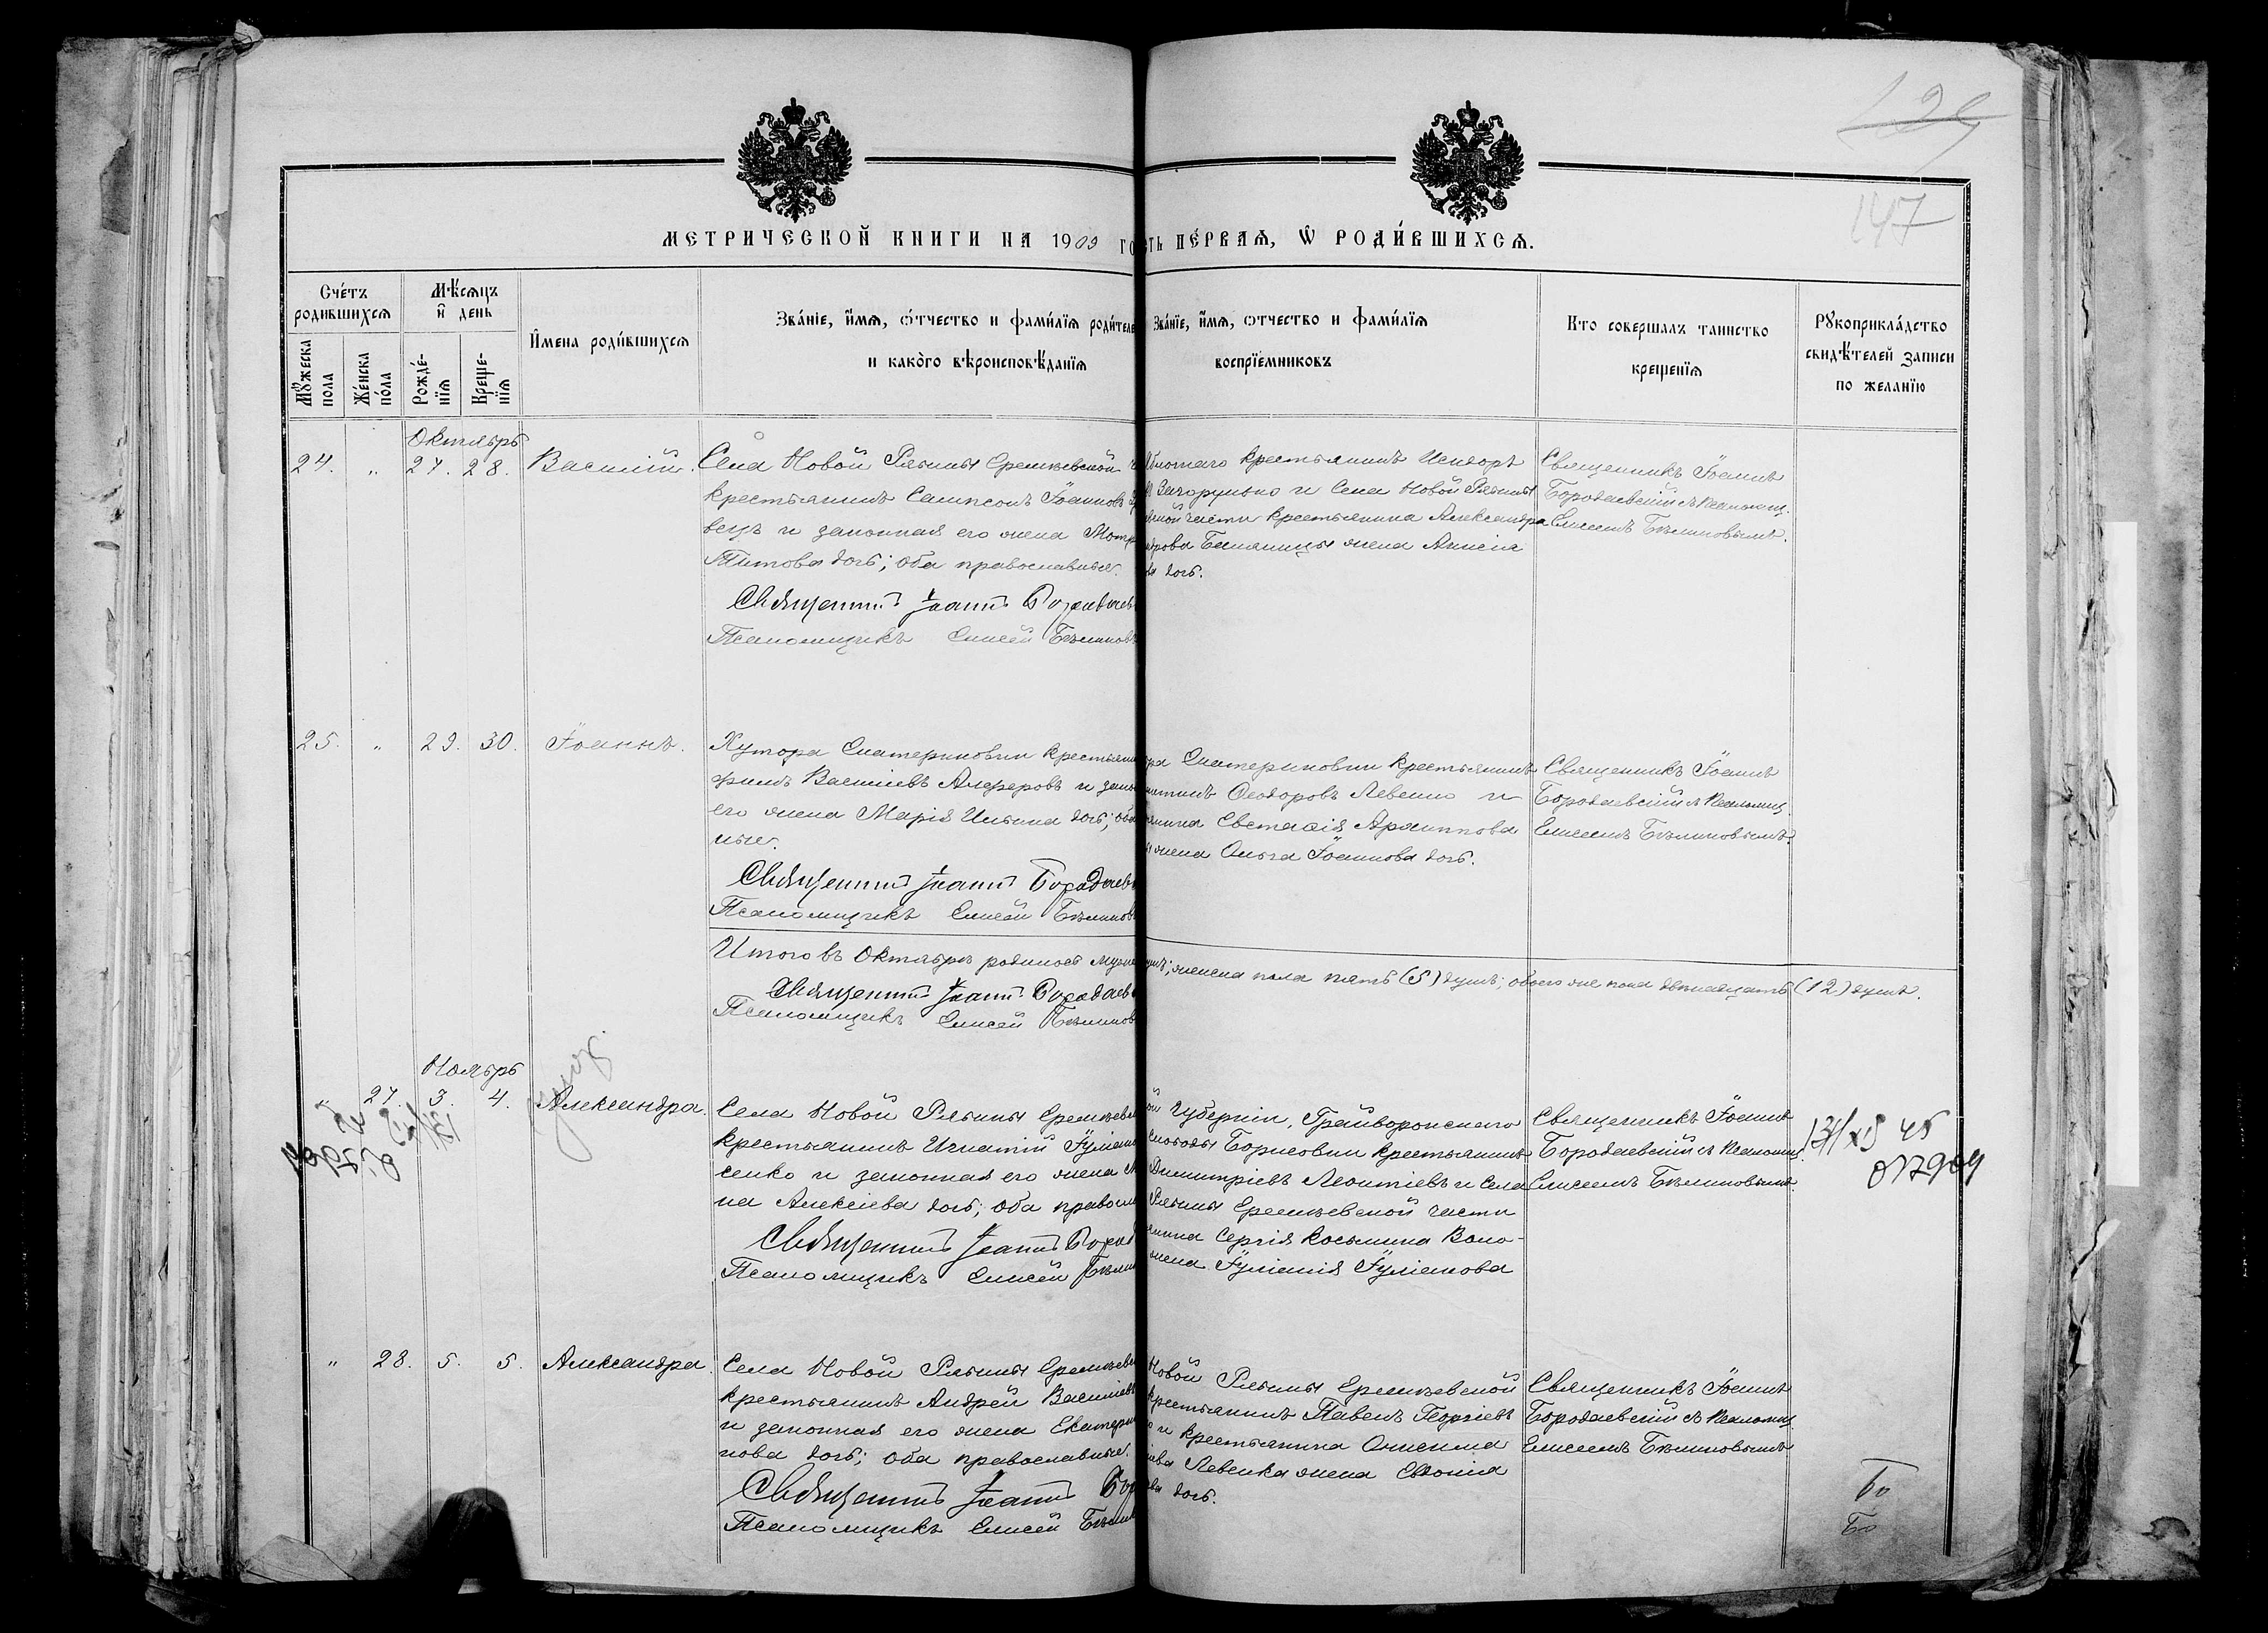 147
МЕТРИЧЕСКОЙ КНИГИ НА 1909 ГО
СТЬ ПЕРВАЯ, Ѡ РОДИВШИХСЯ.
Счетъ родившихся
Мужеска пола
Женска пола
Мѣсяцъ и день
Рождені́я
Крещенія
Имена родившихся
Званіе, имя, отчество и фамилія родителе
и какого вѣроисповѣданія
Званіе, имя, отчество и фамилія
воспріемниковъ
Кто совершалъ таинство
крещенія
Рукоприкладство
свидѣтелей записи
по желанію
Октябрь
24. " 27. 28. Василій.
Села Новой Рябины Еремѣевской
крестьянинъ Сампсонъ Іоанновъ
вецъ и законная его жена Мотр
Титова дочь; оба православные.
Священникъ Іоаннъ Бородаев
Псаломщикъ Елисей Бѣлиновъ
крестьянинъ Исидоръ
Загорулько и Села Новой Рябины
ской части крестьянина Александра
жена Анисія
ва дочь.
Священникъ Іоаннъ
Бородаевскій съ псаломщ.
Елисеемъ Бѣлиновымъ.
25. " 29. 30. Іоаннъ.
Хутора Екатериновки крестьяни
фимъ Василіевъ Алферовъ и закон
его жена Марія Ильина дочь; оба
ные.
Священникъ Іоаннъ Бородаев
Псаломщикъ Елисей Бѣлинов
ра Екатериновки крестьянинъ
Ѳеодоровъ Левенко и
янина Евстаѳія Архиппова
жена Ольга Іоаннова дочь.
Священникъ Іоаннъ
Бородаевскій съ псаломщ.
Елисеемъ Бѣлиновымъ.
Итого въ Октябрѣ родилось муже
ушъ; женска пола пять (5) душъ; обоего же пола двѣнадцать (12) душъ.
Священникъ Іоаннъ Бородаев
Псаломщикъ Елисей Бѣлинов
Ноябрь
" 27. 3. 4. Александра.
Села Новой Рябины Еремѣевск
крестьянинъ Игнатій Іуліан
сенко и законная его жена
на Алексіева дочь; оба правосл
Священникъ Іоаннъ Бород
Псаломщикъ Елисей Бѣлин
ой Губерніи, Грайворонскаго
слободы Борисовки крестьянинъ
Димитріевъ Леонтіевъ и Села
Рябины Еремѣевской части
янина Сергія Косьмина Воло-
жена Іуліанія Іуліанова
Священникъ Іоаннъ
Бородаевскій съ псаломщ.
Елисеемъ Бѣлиновымъ.
" 28. 5. 5. Александра.
Села Новой Рябины Еремѣев
крестьянинъ Андрей Василіевъ
и законная его жена Екатери
нова дочь; оба православные.
Священникъ Іоаннъ Бор
Псаломщикъ Елисей Бѣлин
Новой Рябины Еремѣевской
крестьянинъ Павелъ Георгіевъ
и крестьянина Онисима
Левенка жена Евдокія
ва дочь.
Священникъ Іоаннъ
Бородаевскій съ псаломщ.
Елисеемъ Бѣлиновымъ